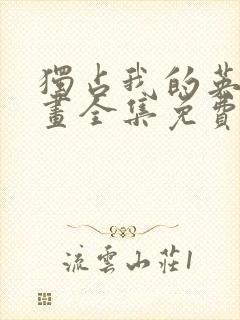 獨占我的英
畫全集免費
流雲山莊1